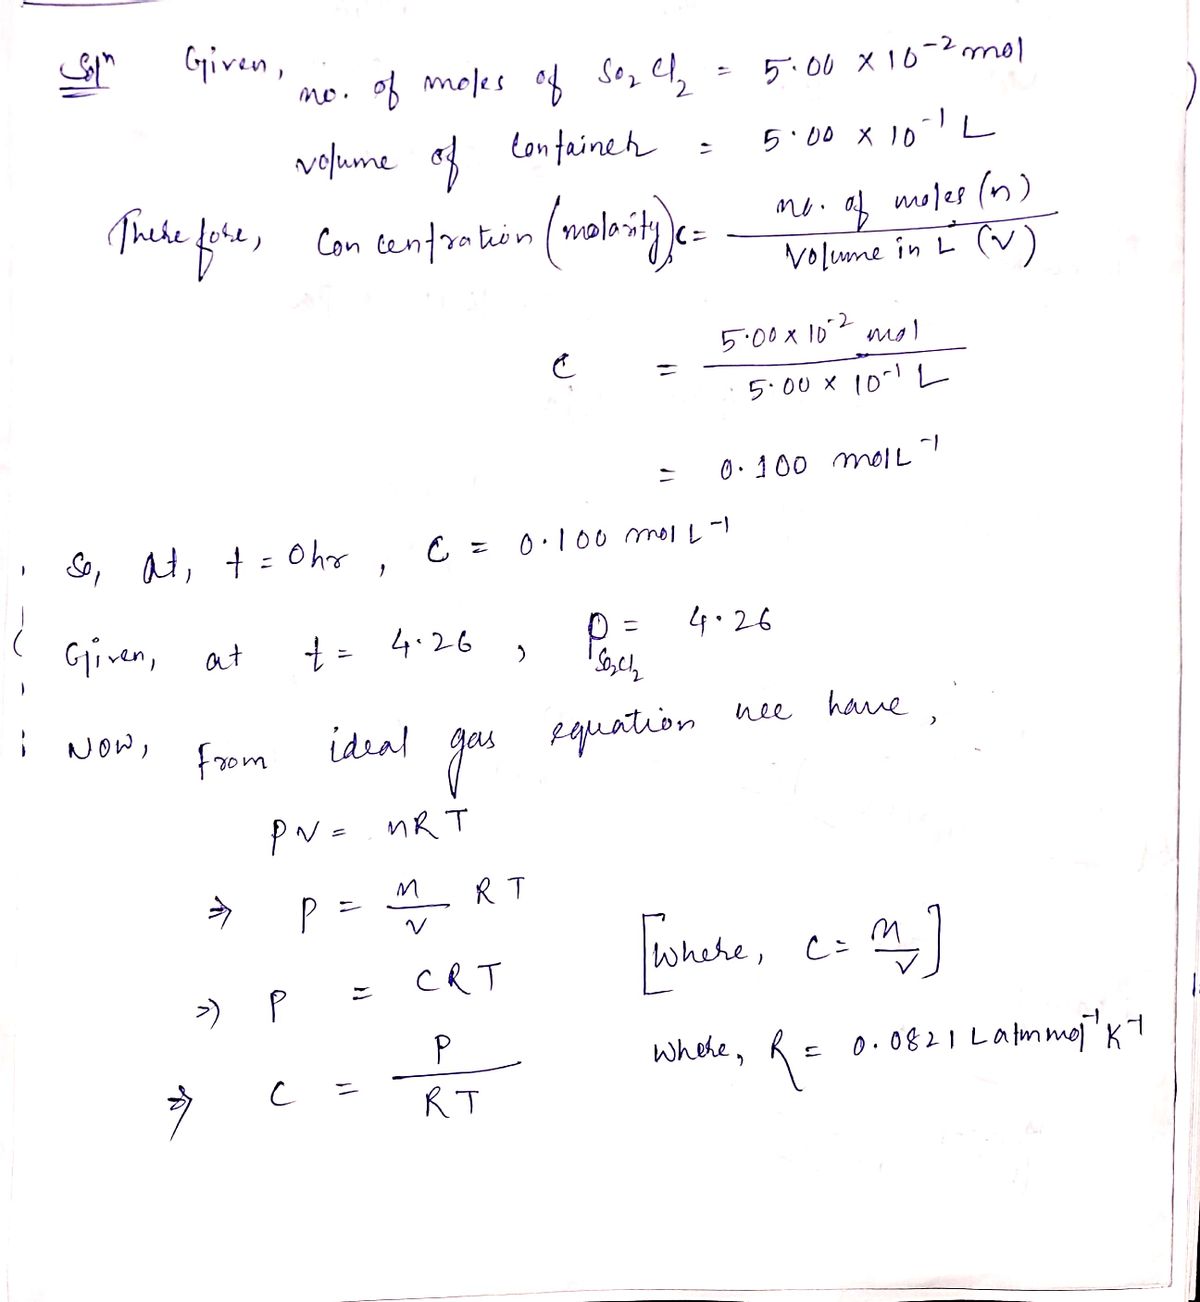 Solⁿ Given,
no. of moles of SO₂Cl₂ = 5.00 × 10⁻² mol
volume of Container = 5.00 × 10⁻¹ L
Therefore, Concentration (molarity), C = no. of moles (n) / Volume in L (V)
C = 5.00 × 10⁻² mol / 5.00 × 10⁻¹ L
= 0.100 mol L⁻¹
So, at, t = 0 hr, C = 0.100 mol L⁻¹
Given, at t = 4.26, P_SO₂Cl₂ = 4.26
NOW, from ideal gas equation wee have,
PV = nRT
⇒ P = n/V RT
⇒ P = CRT [Where, C = n/V]
⇒ C = P/RT where, R = 0.0821 L atm mol⁻¹ K⁻¹